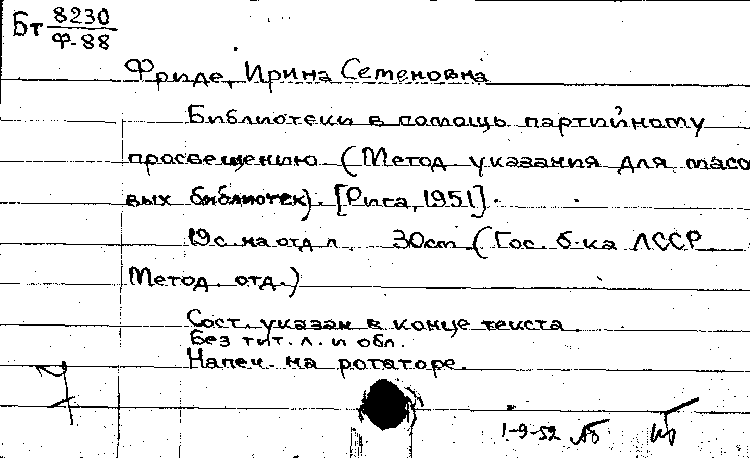 Бт 8230
Ф-88
Фриде, Ирина Семеновна
Библиотеки в помощь партийному
просвещению. (Метод. указания для массо
вых библиотек). [Рига, 1951].
19с. на отд. л. 30cm (Гос. б-ка ЛССР
Метод. отд.)
Сост. указан в конце текста.
Без тит. л. и обл.
Напеч. на ротаторе.
1-9-52